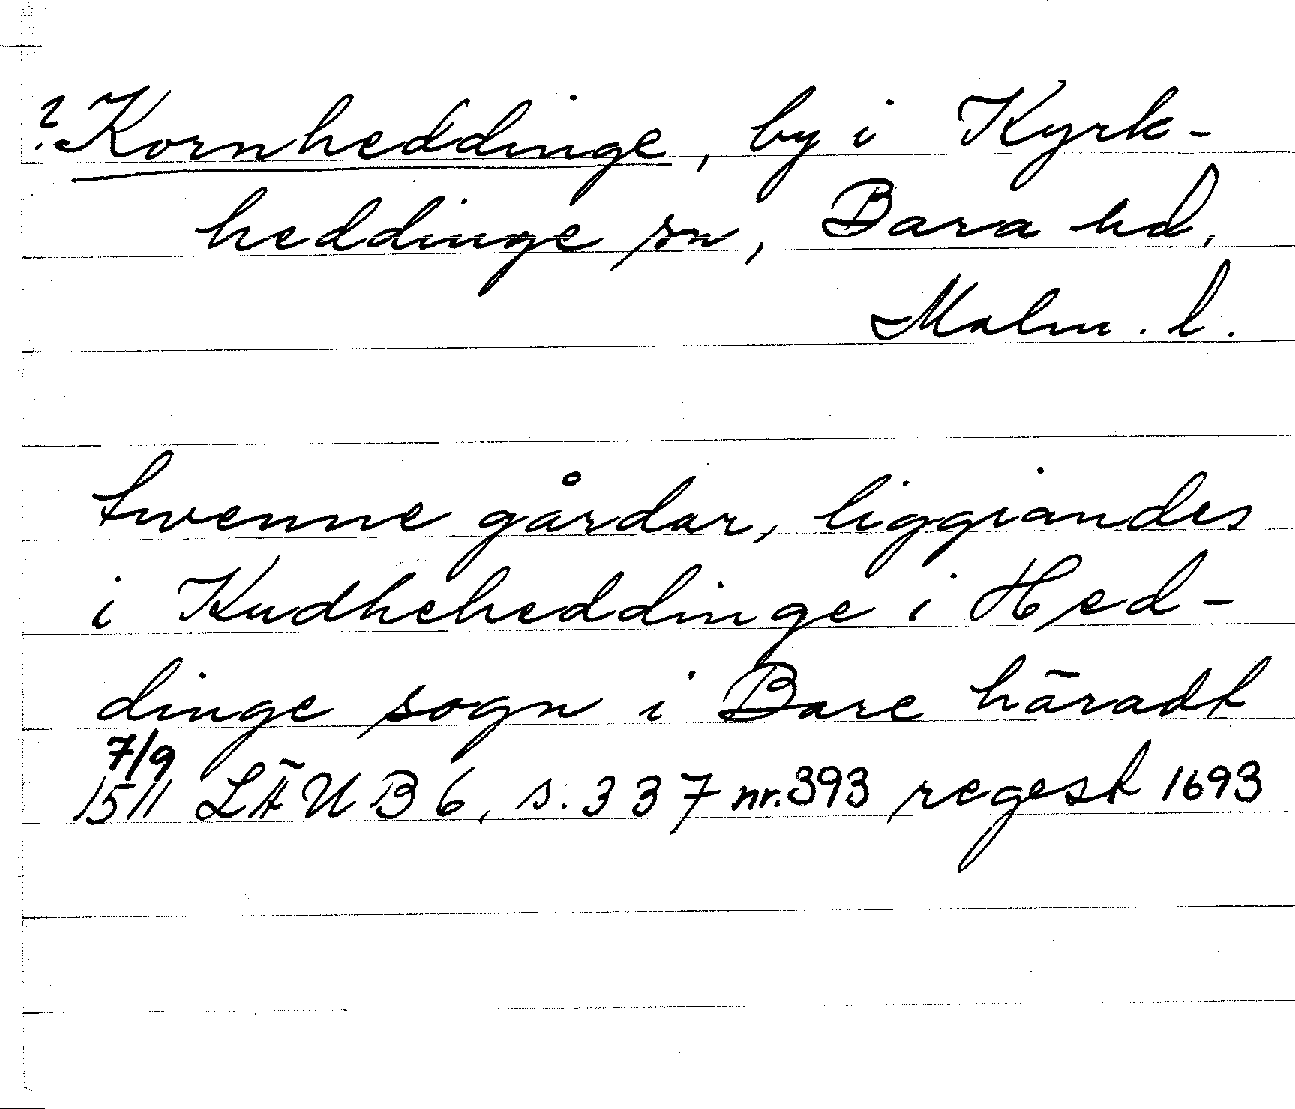 ? Kornheddinge, by i Kyrk-
heddinge sn, Bara hd,
Malm. l.
twenne gårdar, liggiandes
i Kudheheddinge i Hed-
dinge sogn i Bare häradt
7/9
1511 LÄUB 6, s. 337 nr. 393 regest 1693